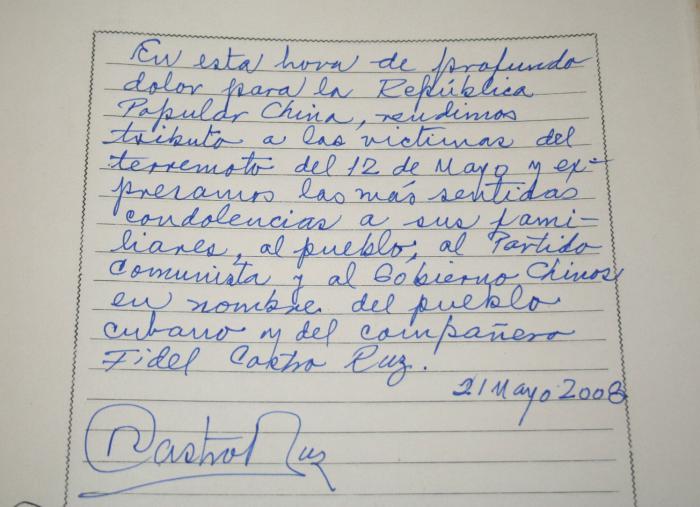 En esta hora de profundo
dolor para la República
Popular China, rendimos
tributo a las victimas del
terremoto del 12 de Mayo y ex-
presamos las más sentidas
condolencias a sus fami-
liares, al pueblo, al Partido
Comunista y al Gobierno Chinos
en nombre del pueblo
cubano y del compañero
Fidel Castro Ruz.
21 Mayo 2008
RCastro Ruz